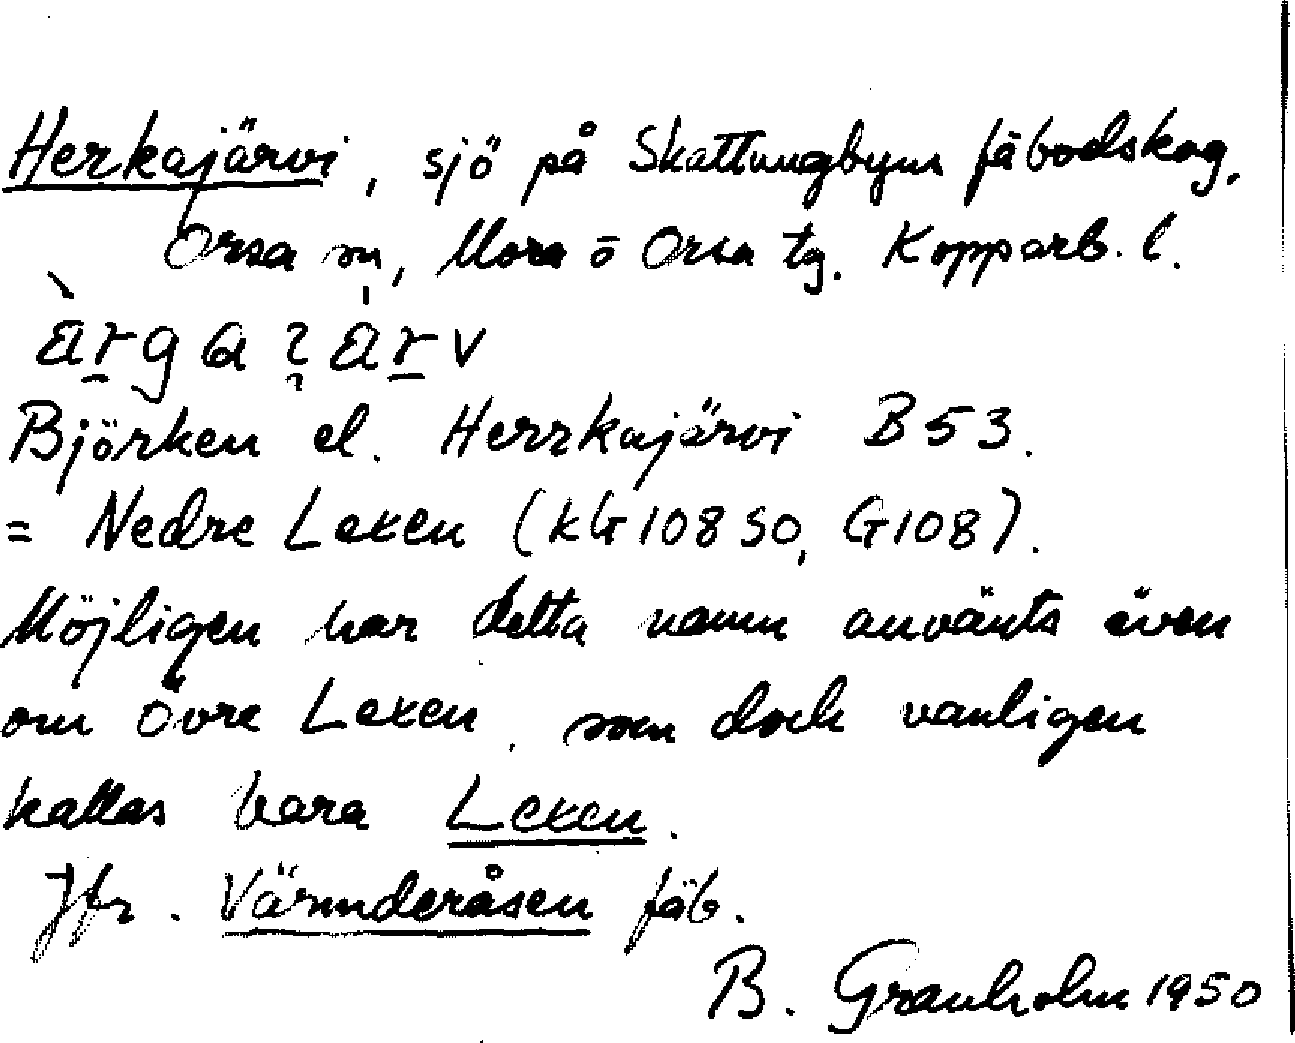 Herkajärvi, sjö på Skattungbyns fäbodskog,
Orsa sn, Mora o Orsa tg. Kopparb. l.
Björken el. Herrkajärvi B53.
= Nedre Lexen (kG 108 SO, G108).
Möjligen har detta namn använts även
om Övre Lexen, som dock vanligen
kallas bara Lexen.
Jfr. Värmderåsen fäb.
B. Granholm 1950